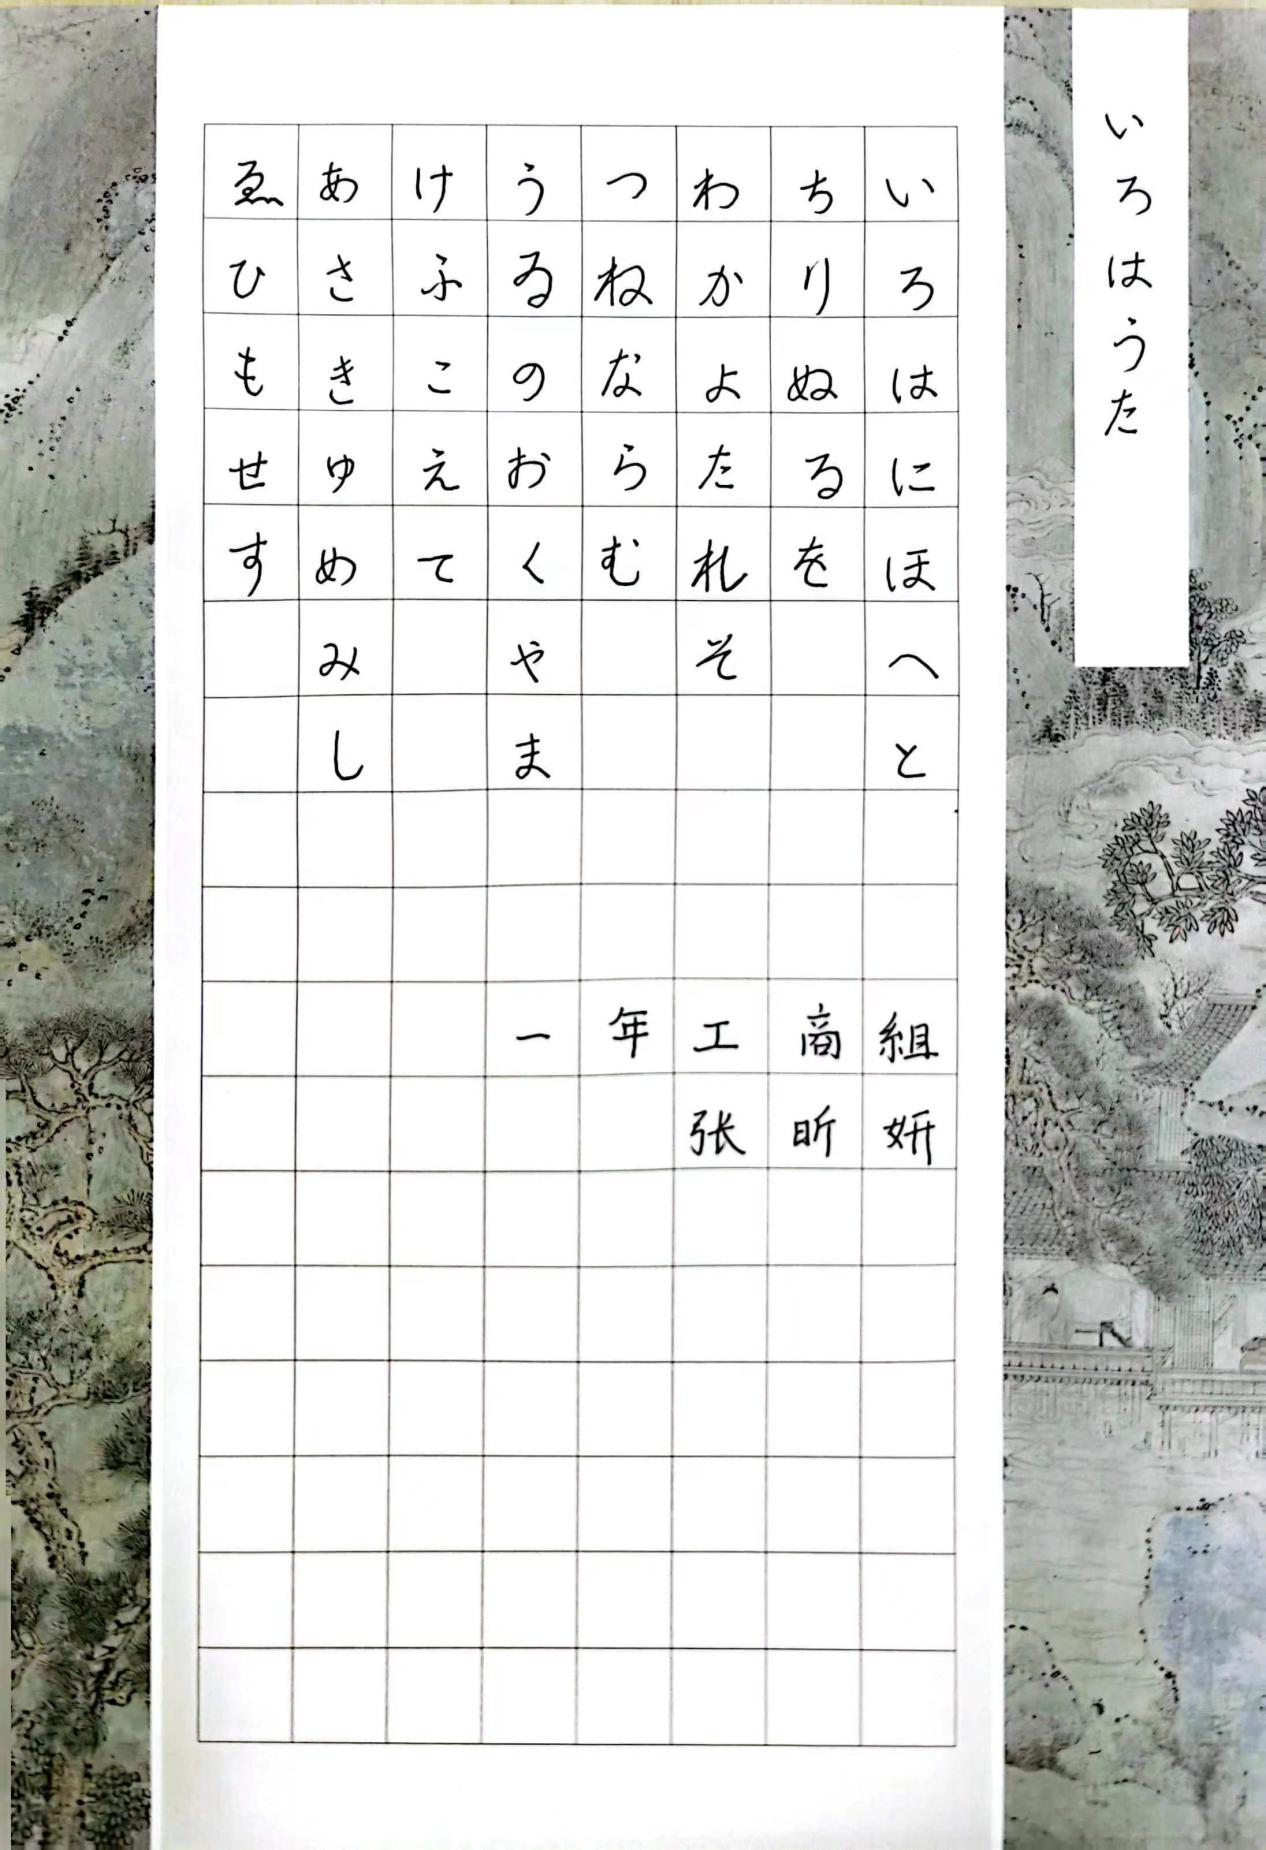 いろはうた
いろはにほへと
ちりぬるを
わかよたれそ
つねならむ
うゐのおくやま
けふこえて
あさきゆめみし
ゑひもせす
一年工商組
张昕妍